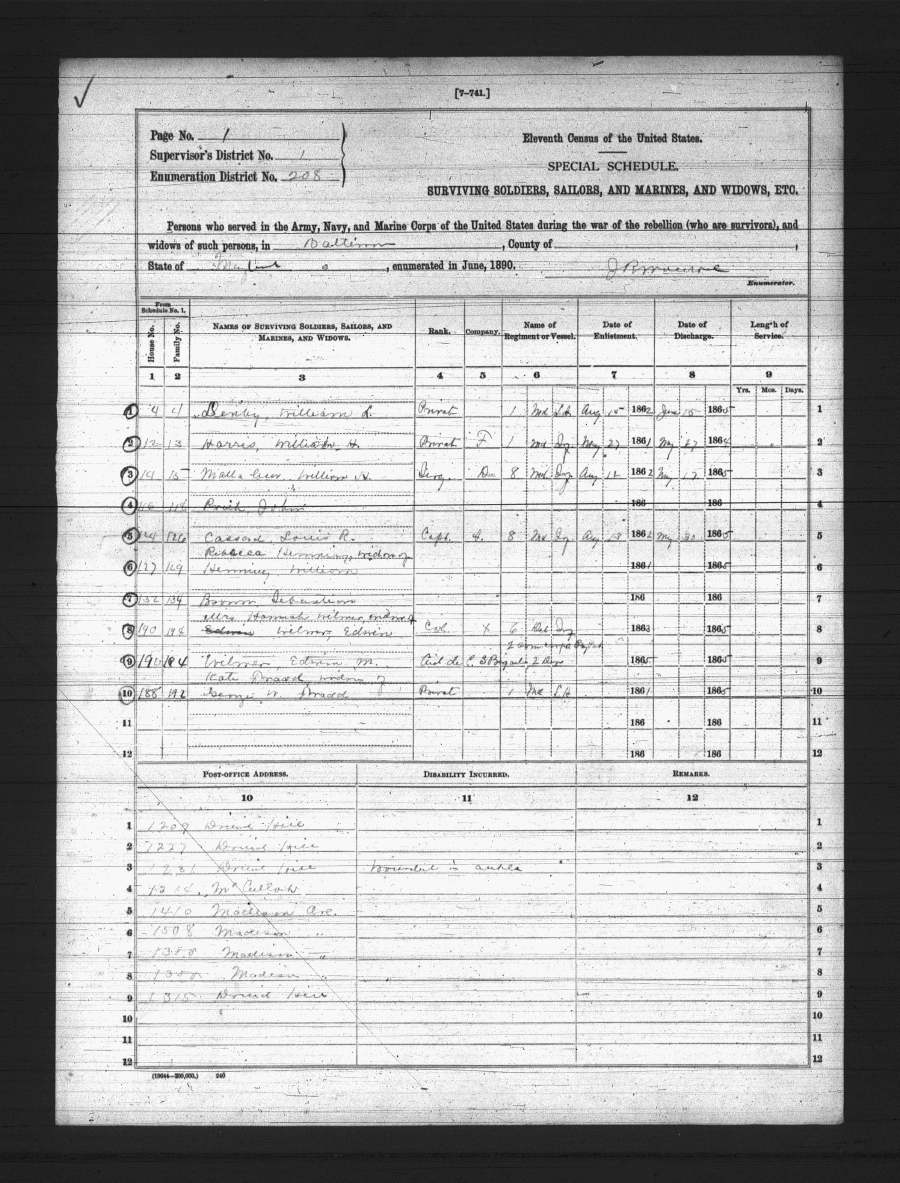 [7–741.]
Page No. 1
Supervisor's District No. 1
Enumeration District No. 208
Eleventh Census of the United States.
SPECIAL SCHEDULE.
SURVIVING SOLDIERS, SAILORS, AND MARINES, AND WIDOWS, ETC.
Persons who served in the Army, Navy, and Marine Corps of the United States during the war of the rebellion (who are survivors), and
widows of such persons, in Baltimore, County of ,
State of Maryland, enumerated in June, 1890.
Enumerator.
From Schedule No. 1.
House No. Family No. NAMES OF SURVIVING SOLDIERS, SAILORS, AND MARINES, AND WIDOWS. Rank. Company. Name of Regiment or Vessel. Date of Enlistment. Date of Discharge. Length of Service.
1 2 3 4 5 6 7 8 9
Yrs. Mos. Days.
1 4 4 Denby, William L. Private 1 Md L.A Aug 15 1862 June 15 1865 1
2 12 13 Harris, William H. Private F 1 Md Aug May 27 1861 May 27 1864 2
3 14 15 William H. Serg. D 8 Md Aug 12 1862 May 1865 3
4 John 186 186 4
5 126 Cassard, Louis R. Capt. 8 Md Aug 13 1862 May 30 1865 5
Rebecca Hemming, widow of
6 127 129 Hemming William 1861 186 6
7 132 134 Brown Sebastian 186 186 7
Mrs. Hannah Wilmer, widow of
8 190 194 Edwin Wilmer, Edwin Col. X 6 Del 1863 186 8
9 190 194 Wilmer, Edwin M. Aid de C. 3 Brigade, 2 Div 1865 1865 9
Kate Bradd, widow of
10 188 192 George W. Bradd Private 1 Md L.A 1861 1865 10
11 186 186 11
12 186 186 12
POST-OFFICE ADDRESS. DISABILITY INCURRED. REMARKS.
10 11 12
1 1209 Druid Hill 1
2 1227 Druid Hill 2
3 1231 Druid Hill Wounded in ankle 3
4 McCulloh 4
5 1410 Madison Ave. 5
6 1508 Madison " 6
7 Madison " 7
8 Madison " 8
9 1315 Druid Hill 9
10 10
11 11
12 12
(19644—200,000.) 240